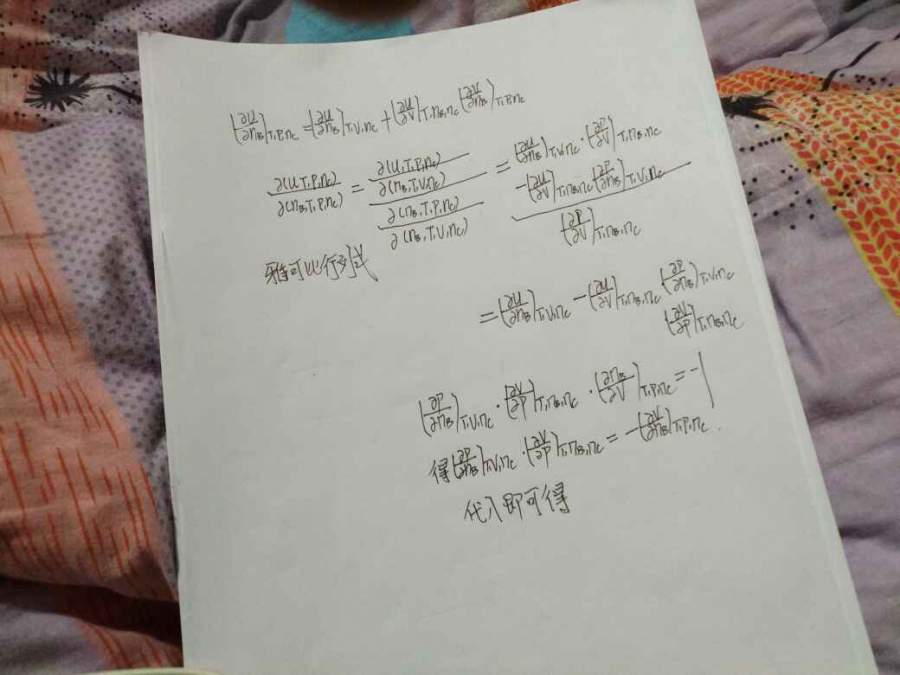 (∂U/∂n_B)_{T,P,n_C} = (∂U/∂n_B)_{T,V,n_C} + (∂U/∂V)_{T,n_B,n_C} (∂V/∂n_B)_{T,P,n_C}
∂(U,T,P,n_C)/∂(n_B,T,P,n_C) = [∂(U,T,P,n_C)/∂(n_B,T,V,n_C)] / [∂(n_B,T,P,n_C)/∂(n_B,T,V,n_C)] = [(∂U/∂n_B)_{T,V,n_C} · (∂P/∂V)_{T,n_B,n_C} - (∂U/∂V)_{T,n_B,n_C} (∂P/∂n_B)_{T,V,n_C}] / (∂P/∂V)_{T,n_B,n_C}
雅可比行列式
= (∂U/∂n_B)_{T,V,n_C} - (∂U/∂V)_{T,n_B,n_C} (∂P/∂n_B)_{T,V,n_C}
(∂V/∂P)_{T,n_B,n_C}
(∂P/∂n_B)_{T,V,n_C} · (∂V/∂P)_{T,n_B,n_C} · (∂n_B/∂V)_{T,P,n_C} = -1
得 (∂P/∂n_B)_{T,V,n_C} · (∂V/∂P)_{T,n_B,n_C} = -(∂V/∂n_B)_{T,P,n_C}.
代入即可得